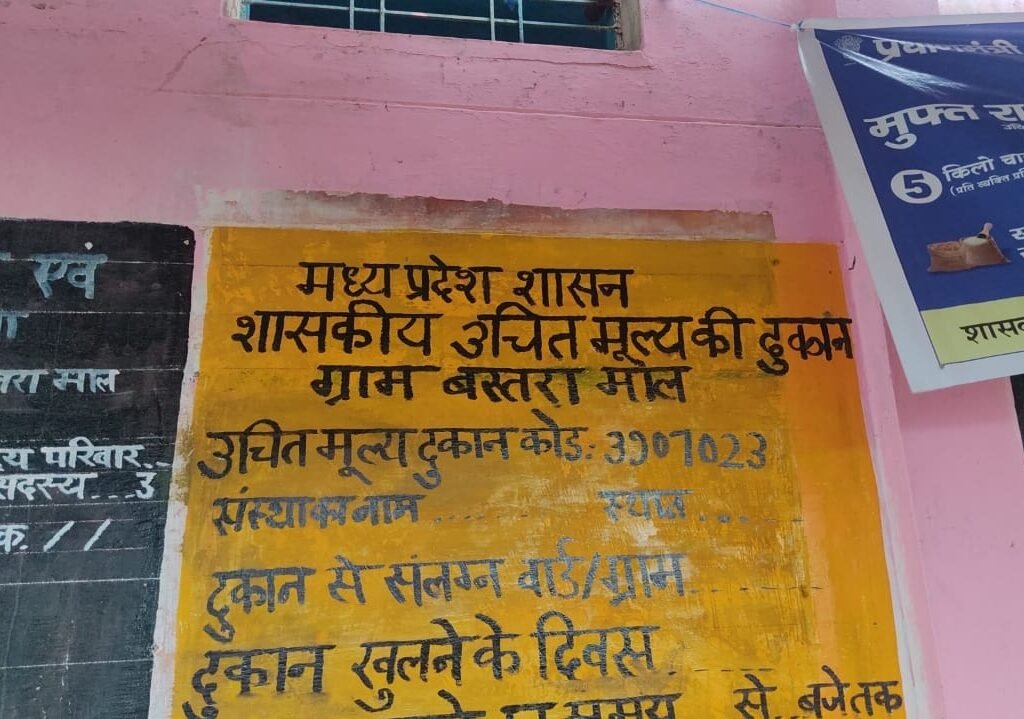 एवं
माल
परिवार..
सदस्य...3
क. //
मध्य प्रदेश शासन
शासकीय उचित मूल्य की दुकान
ग्राम बस्तरा माल
उचित मूल्य दुकान कोड: 3907023
संस्था का नाम ........
दुकान से संलग्न वार्ड/ग्राम.......
दुकान खुलने के दिवस
समय से..बजे तक
प्रधानमंत्री
मुफ्त
5 किलो
(प्रति व्यक्ति